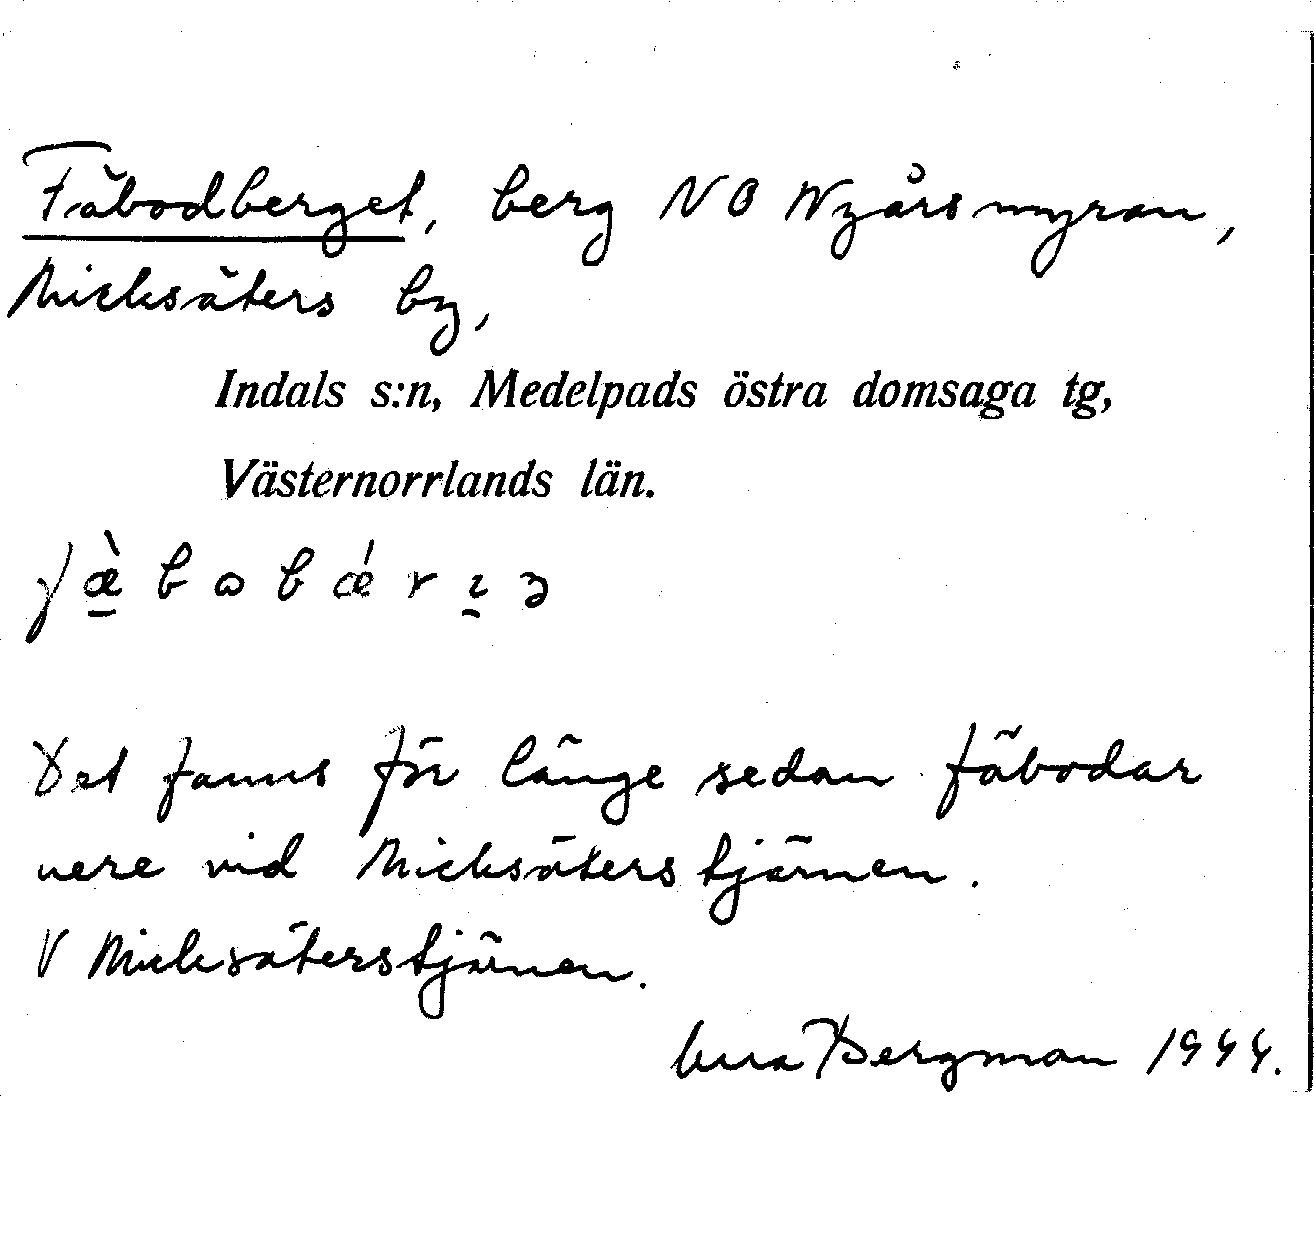 Fäbodberget, berg NO Nyårsmyran,
Micksäters by,
Indals s:n, Medelpads östra domsaga tg,
Västernorrlands län.
Det fanns för länge sedan fäbodar
nere vid Micksäterstjärnen.
V Micksäterstjärnen.
Bergman 1944.